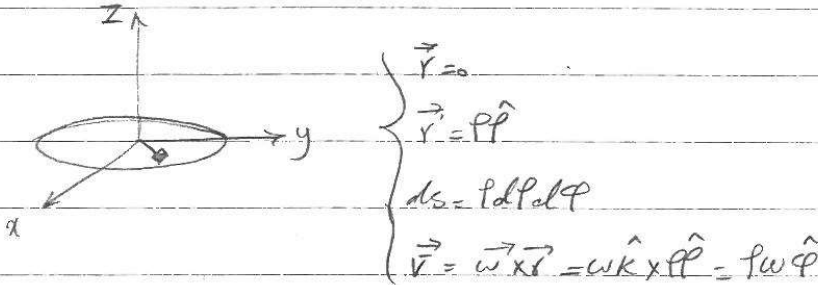 z
y
x
r⃗ = 0
r⃗' = ρρ̂
ds = ρdρdφ
v⃗ = ω⃗ × r⃗ = ωk̂ × ρρ̂ = ρω φ̂